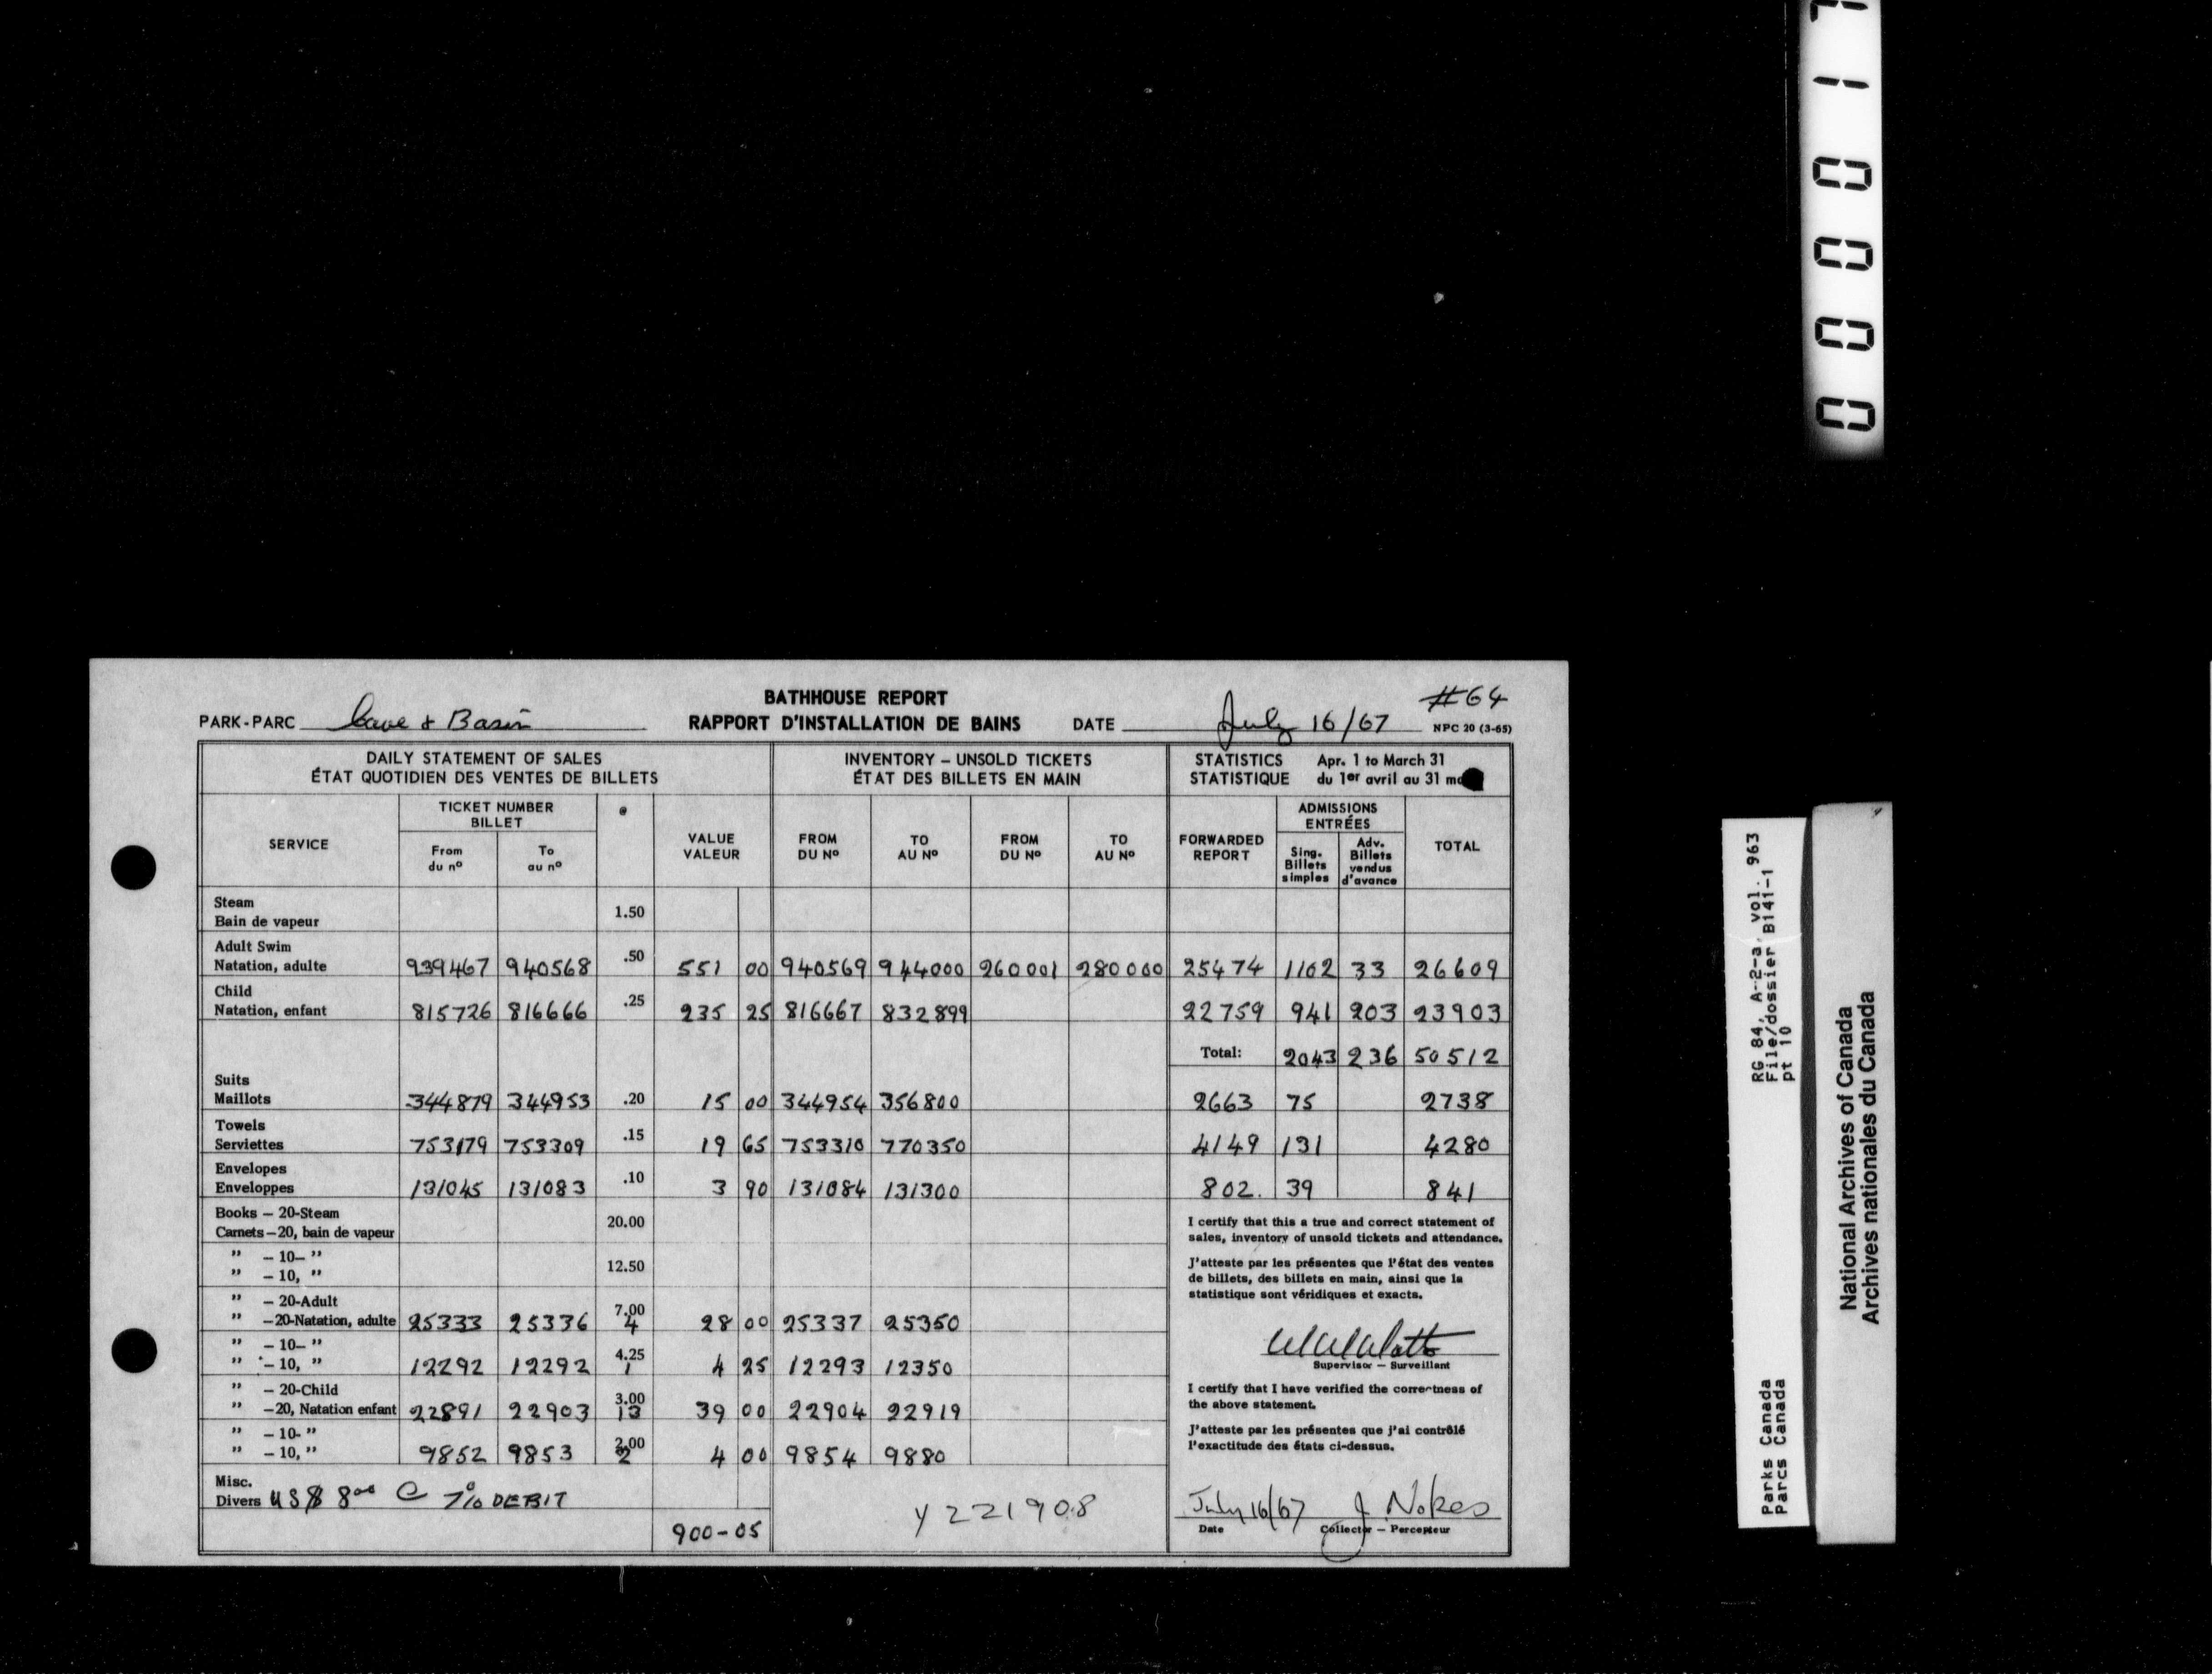 000017
#64
BATHHOUSE REPORT
PARK-PARC Cave & Basin RAPPORT D'INSTALLATION DE BAINS DATE July 16/67 NPC 20 (3-65)
DAILY STATEMENT OF SALES INVENTORY – UNSOLD TICKETS STATISTICS Apr. 1 to March 31
ÉTAT QUOTIDIEN DES VENTES DE BILLETS ÉTAT DES BILLETS EN MAIN STATISTIQUE du 1er avril au 31
SERVICE
TICKET NUMBER
BILLET
From
du nº
To
au nº
@
VALUE
VALEUR
FROM
DU Nº
TO
AU Nº
FROM
DU Nº
TO
AU Nº
FORWARDED
REPORT
ADMISSIONS
ENTRÉES
Sing.
Billets
simples
Adv.
Billets
vendus
d'avance
TOTAL
Steam
Bain de vapeur 1.50
Adult Swim
Natation, adulte 939467 940568 .50 551 00 940569 944000 260001 280000 25474 1102 33 26609
Child
Natation, enfant 815726 816666 .25 235 25 816667 832899 22759 941 203 23903
Total: 2043 236 50512
Suits
Maillots 344879 344953 .20 15 00 344954 356800 2663 75 2738
Towels
Serviettes 753179 753309 .15 19 65 753310 770350 4149 131 4280
Envelopes
Enveloppes 131045 131083 .10 3 90 131084 131300 802. 39 841
Books – 20-Steam
Carnets – 20, bain de vapeur 20.00
" – 10– "
" – 10, " 12.50
" – 20-Adult 7.00
" –20-Natation, adulte 25333 25336 4 28 00 25337 25350
" – 10– " 4.25
" – 10, " 12292 12292 1 4 25 12293 12350
" – 20-Child 3.00
" –20, Natation enfant 22891 22903 13 39 00 22904 22919
" – 10- " 2.00
" – 10, " 9852 9853 2 4 00 9854 9880
Misc.
Divers US$ 8.00 @ 7% DEBIT
900-05
Y221908
I certify that this a true and correct statement of
sales, inventory of unsold tickets and attendance.
J'atteste par les présentes que l'état des ventes
de billets, des billets en main, ainsi que la
statistique sont véridiques et exacts.
Supervisor – Surveillant
I certify that I have verified the correctness of
the above statement.
J'atteste par les présentes que j'ai contrôlé
l'exactitude des états ci-dessus.
July 16/67 J Nokes
Date Collector – Percepteur
RG 84, A-2-a, vol. 963
File/dossier B141-1
pt 10
Parks Canada
Parcs Canada
National Archives of Canada
Archives nationales du Canada